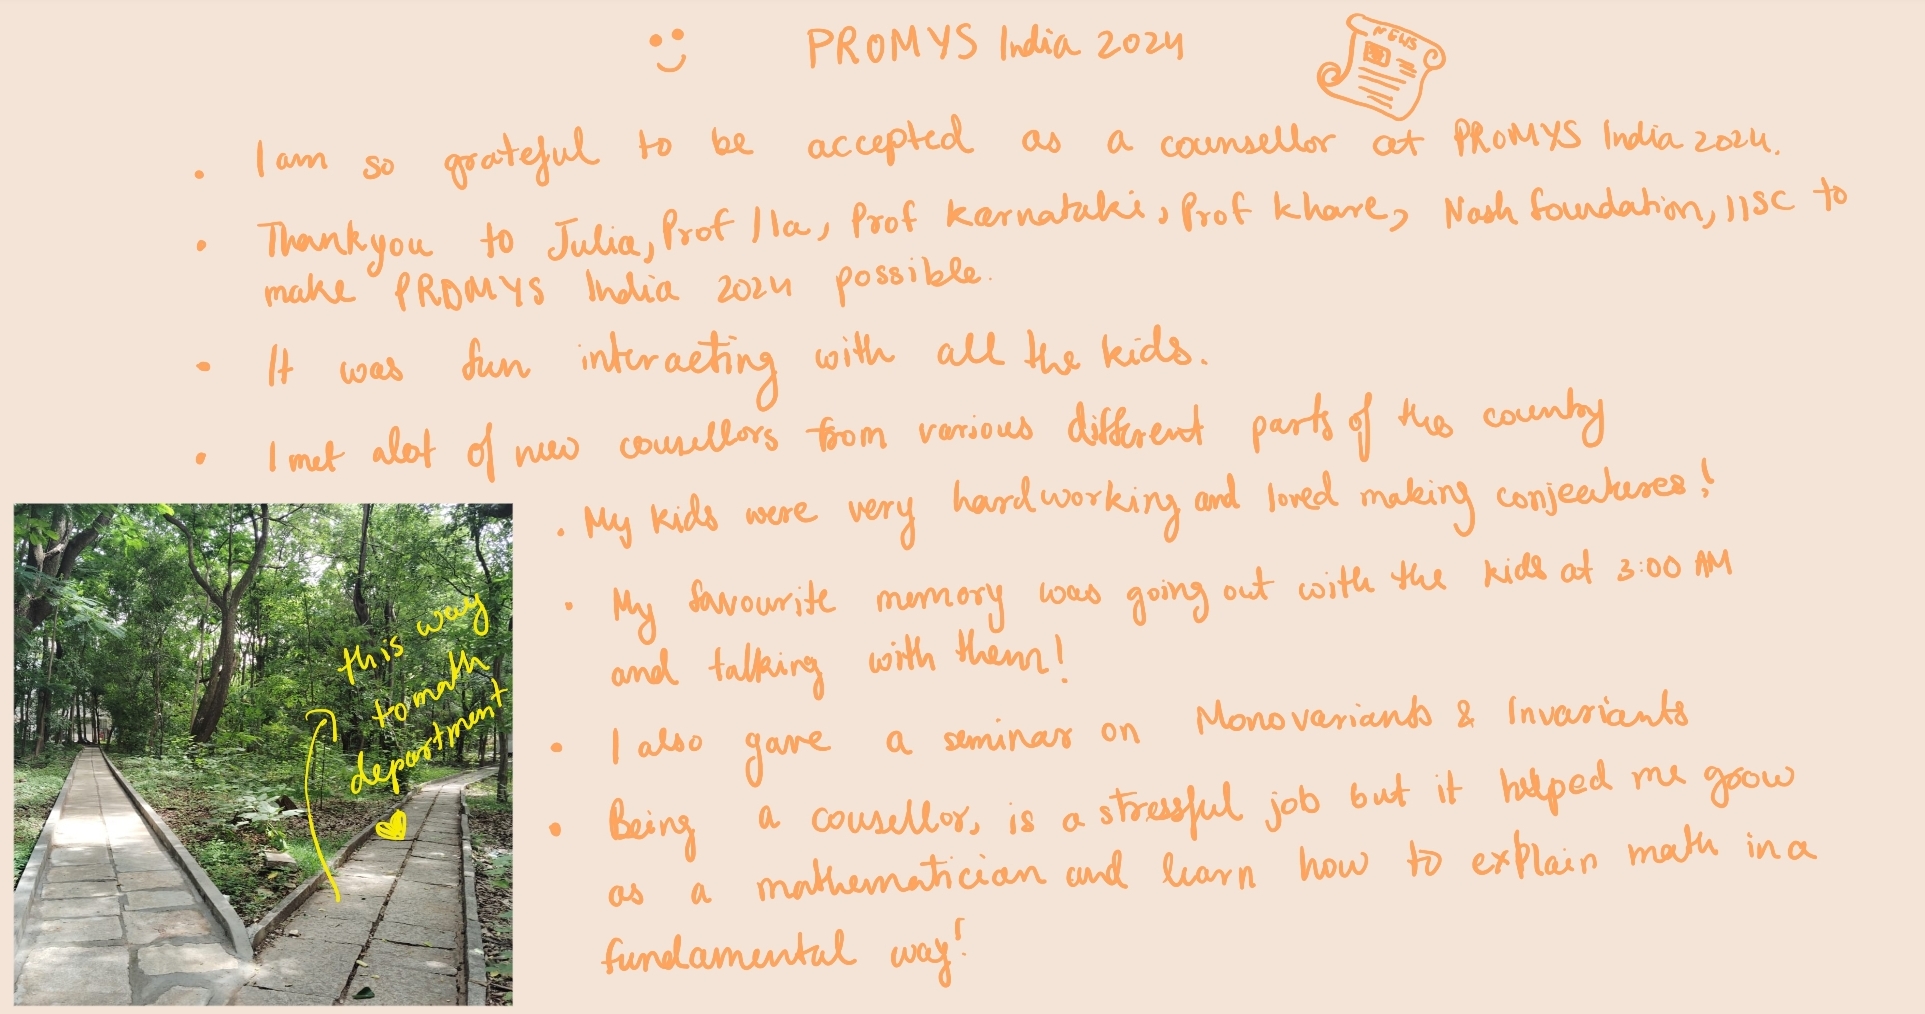 PROMYS India 2024
NEWS
• I am so grateful to be accepted as a counsellor at PROMYS India 2024.
• Thankyou to Julia, Prof Ila, Prof Karnataki, Prof Khare, Nash foundation, IISC to
make PROMYS India 2024 possible.
• It was fun interacting with all the kids.
• I met alot of new cousellors from various different parts of the country
• My kids were very hardworking and loved making conjectures!
• My favourite memory was going out with the kids at 3:00 AM
and talking with them!
• I also gave a seminar on Monovariants & Invariants
• Being a cousellor, is a stressful job but it helped me grow
as a mathematician and learn how to explain math in a
fundamental way!
this way
to math
department